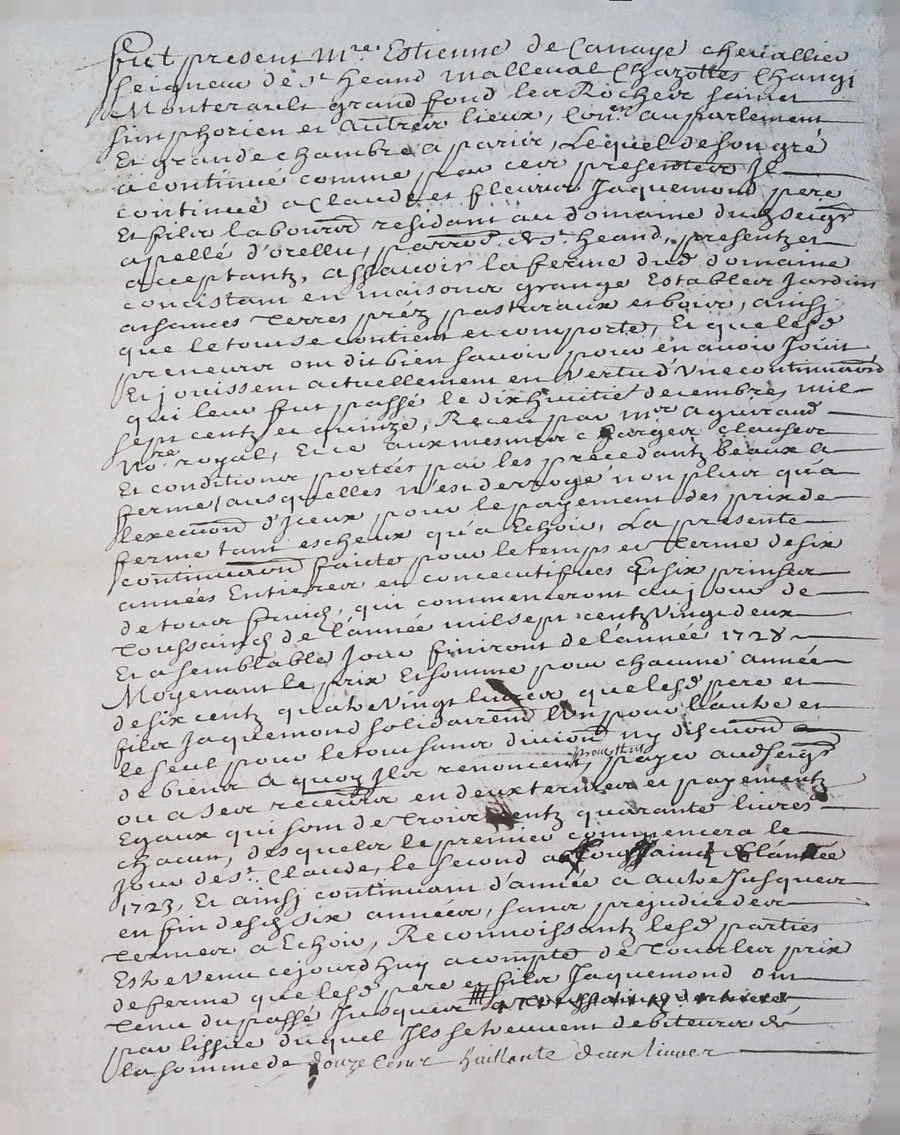 fut present m.re Estienne de Canaye chevallier
seigneur de st. heand Malleval Chazottes Changi
Monterault grand fond les Rocher sainct
simphorien et autres lieux, Con.er au parlement
Et grande chambre a paris, Lequel de son gré
a continué comme par ces presentes Il
continue a Claude et fleuris Jaquemond pere
Et fils labourd residant au domaine dud. seigr
apellé d'orellu, parroe. de st. heand, presentz et
acceptantz, assavoir la ferme dud. domaine
concistant en maisons grange Estables Jardins
aisances Terres préz pasturaux et bois, ainsi
que le tout se contient et comporte, Et que lesd
preneurs ont dit bien savoir pour en avoir Jouit
Et jouissent actuellement en vertu d'Une continuaon
qui leur fut passé le dixhuitié decembres mil
sept centz et quinze, Receu par mre aguiraud
Nore. royal, Et ce aux mesmes charges clauses
Et conditions portéés par les précédantz beaux a
ferme, ausquelles n'est derrogé non plus qu'a
lexecuon d'iceux pour le payement des prix de
ferme tant escheux qu'a Echoir, La presente
continuaon faicte pour le temps et Terme de six
années Entieres et concecutifves Et six prinses
de tous fruicz, qui commenceront au jour de
Toussainct de l'année mil sept centz vingt deux
Et a semblable Jour finiront de lannée 1728
Moyenant le prix Et somme pour chacune année
de six centz quatre vingt livres que lesd pere et
fils Jaquemond solidairemt l'un pour l'autre et
le seul pour le tout sans divion ny discuon
de biens a quoy Ils renoncent, payer aud seigr
ou a ses recevrs en deux termes et payementz
Egaux qui sont de Trois centz quarante livres
chacun, desquels le premier commencera le
Jour de st. Claude, le second a Toussainct
1723, Et ainsi continuant d'année a autre Jusques
en fin desd. six années, sans prejudice des
Termes a Echoir, Reconnoissantz lesd parties
Estre venu cejourdhuy a compte de Tous les prix
de ferme que lesd pere et fils Jaquemond ont
Tenu du passé Jusques a toussainct dernière
par lissue duquel Ils se treuvent debiteurs de
la somme de douze Cens livres